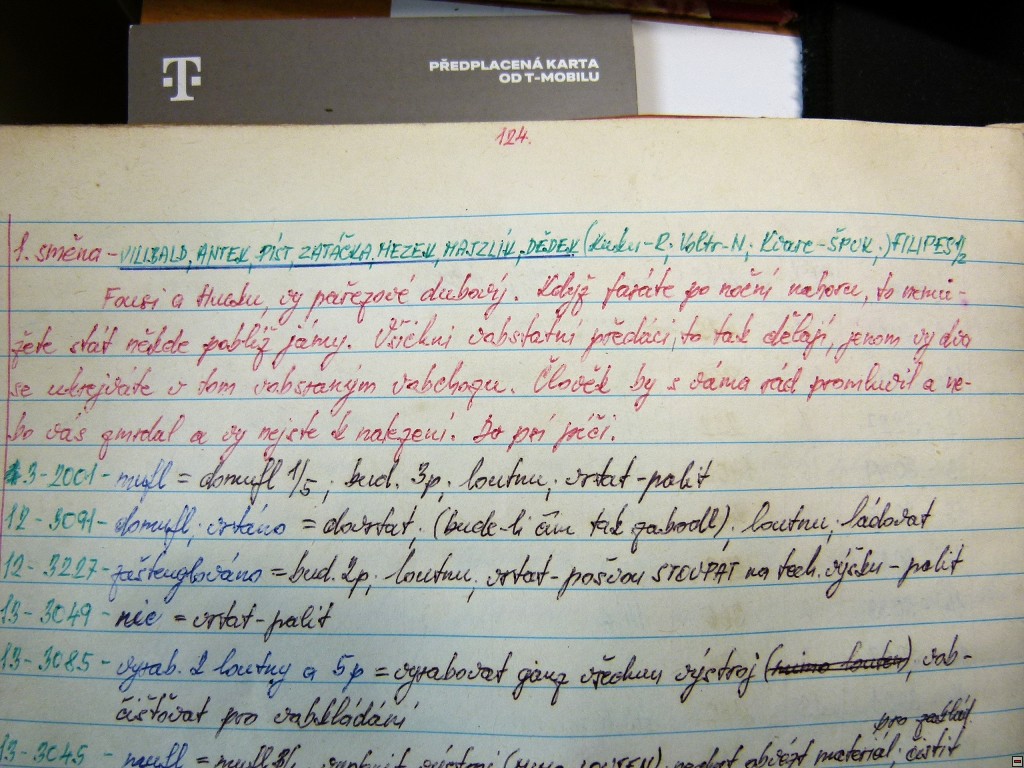 T
PŘEDPLACENÁ KARTA
OD T-MOBILU
124.
1. směna - VILIBALD, ANTEK, PÍST, ZATÁČKA, MEZEK, HAJZLÍK, DĚDEK (Kuku-R; Voltr-N; Kvare-ŠPUK;) FILIPES 1/2
Fousi a Hucku, vy pařezové dubový. Když faráte po noční nahoru, to nemů-
žete stát někde poblíž jámy. Všichni vobstatní předáci, to tak dělají, jenom vy dva
se ukrejváte v tom vobsraným vobchogu. Člověk by s váma rád promluvil a ne-
bo vás zmrdal a vy nejste k nalezení. Do psí píči.
3-2001 - mufl = domufl 1/5; bud. 3p; loutnu; vrtat-palit
12-3091 - domufl; vrtáno = dovrtat; (bude-li čím tak zabodl); loutnu; ládovat
12-3227 - zaštenglováno = bud. 2p; loutnu; vrtat-počvou STOUPAT na tech. výšku-palit
13-3049 - nic = vrtat-palit
13-3085 - vyrab. 2 loutny a 5p = vyrabovat ganz všechnu výstroj (mimo louten), vob-
čišťovat pro vobkládání
pro
13-3045 - mufl = mufl (MIMO LOUTEN) materiál; čistit